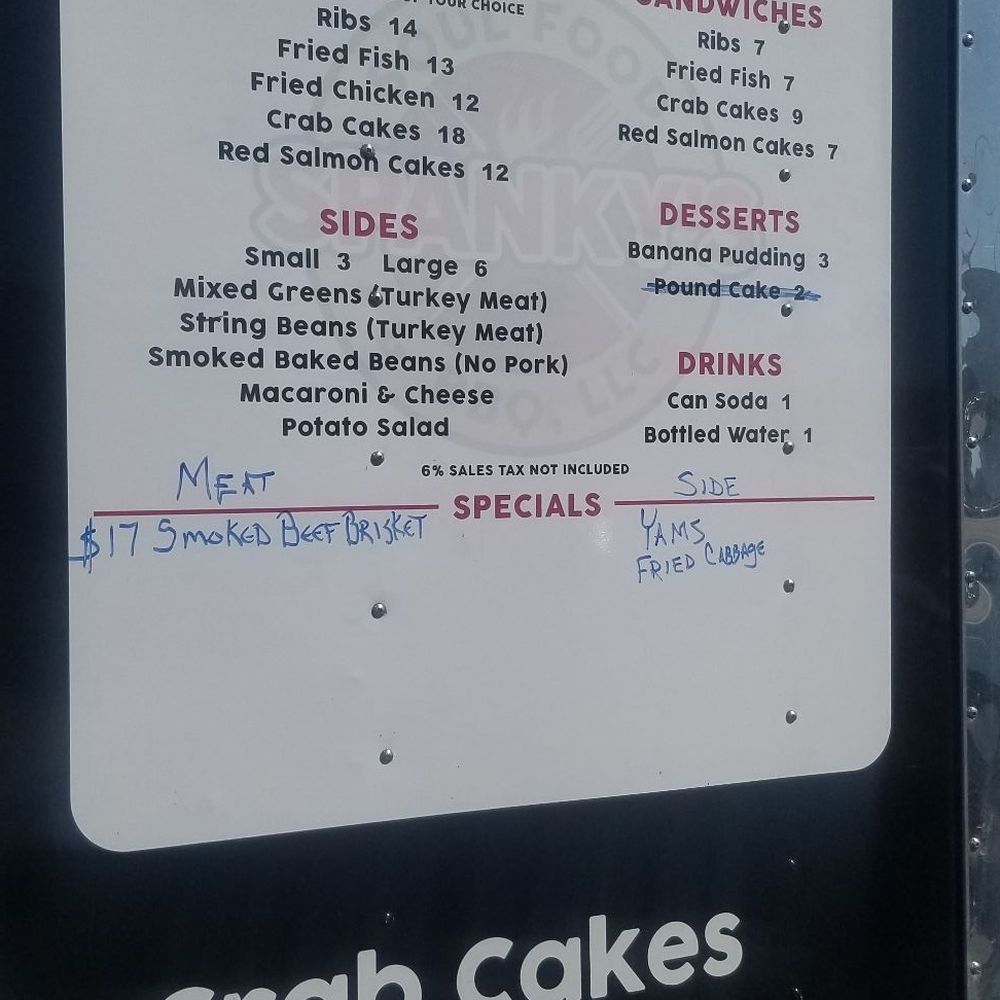 YOUR CHOICE
Ribs 14
Fried Fish 13
Fried Chicken 12
Crab Cakes 18
Red Salmon Cakes 12
SIDES
Small 3 Large 6
Mixed Greens (Turkey Meat)
String Beans (Turkey Meat)
Smoked Baked Beans (No Pork)
Macaroni & Cheese
Potato Salad
SANDWICHES
Ribs 7
Fried Fish 7
Crab Cakes 9
Red Salmon Cakes 7
DESSERTS
Banana Pudding 3
Pound Cake 2
DRINKS
Can Soda 1
Bottled Water 1
6% SALES TAX NOT INCLUDED
SPECIALS
MEAT
$17 SMOKED BEEF BRISKET
SIDE
YAMS
FRIED CABBAGE
SOUL FOOD
SPANKY'S
LLC
Crab Cakes